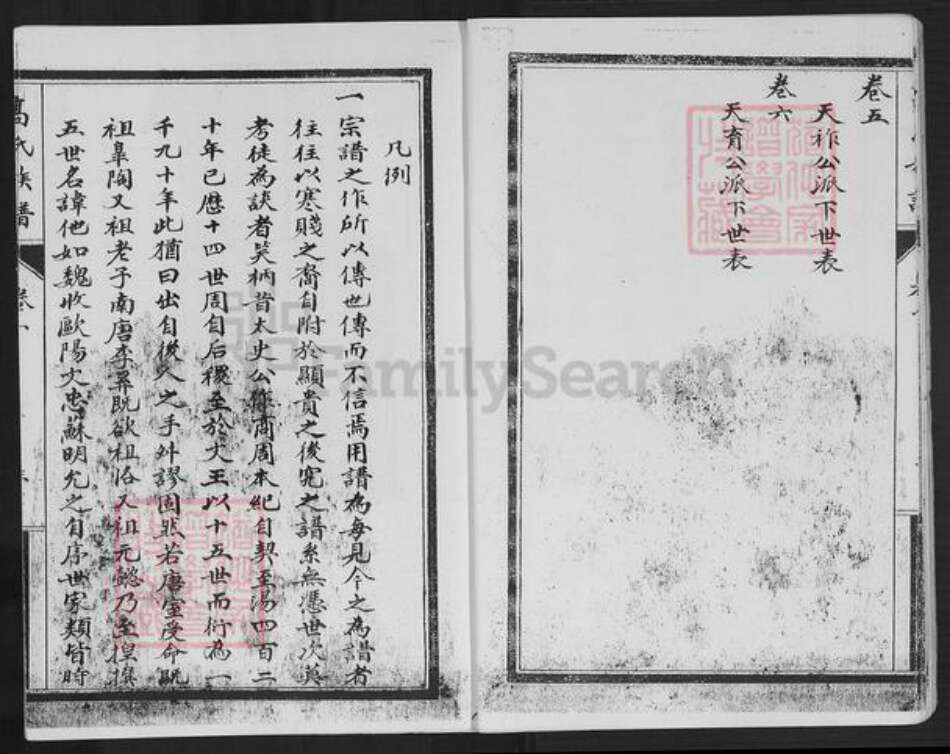 卷五
天祚公派下世表
卷六
天育公派下世表
凡例
一宗譜之作所以傳世也傳而不信焉用譜為每見今之為譜者
往往以寒賤之裔自附於顯貴之後究之譜系無憑世次莫
考徒為談者笑柄昔太史公作商周本紀自契至湯四百二
十年已歷十四世周自后稷至於文王以十五世而衍為一
千九十年此猶曰出自後人之手外謬固然若唐室受命既
祖臯陶又祖老子南唐李昇既欲祖恪又祖元懿乃至捏撰
五世名諱他如魏收歐陽文忠蘇明允之自序世家類皆時
高氏族譜
卷一
FamilySearch